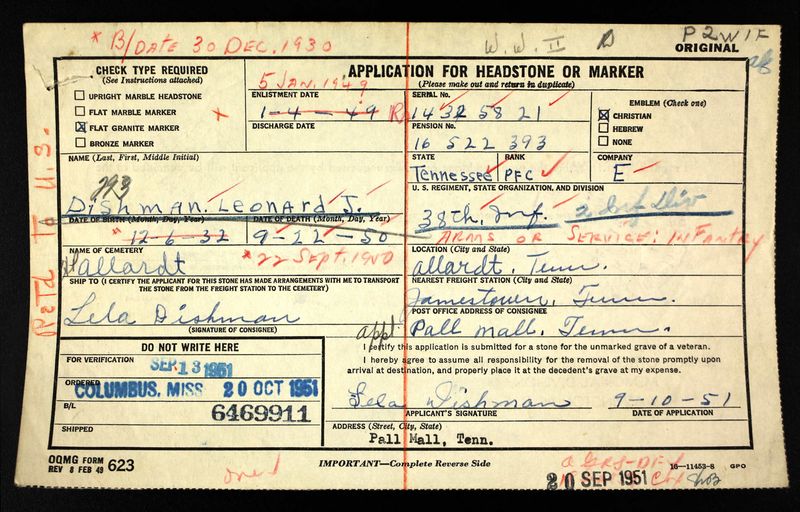 * B/DATE 30 DEC. 1930
W.W. II
P2W1F
ORIGINAL
CHECK TYPE REQUIRED
(See Instructions attached)
UPRIGHT MARBLE HEADSTONE
FLAT MARBLE MARKER
FLAT GRANITE MARKER
BRONZE MARKER
5 JAN. 1949
ENLISTMENT DATE
1-4-49
DISCHARGE DATE
APPLICATION FOR HEADSTONE OR MARKER
(Please make out and return in duplicate)
SERIAL No.
14 32 58 21
PENSION No.
16 522 393
EMBLEM (Check one)
CHRISTIAN
HEBREW
NONE
STATE
Tennessee
RANK
PFC
COMPANY
E
NAME (Last, First, Middle Initial)
293
Dishman. Leonard J.
U. S. REGIMENT, STATE ORGANIZATION, AND DIVISION
38th, Inf. 2 Inf Div
DATE OF BIRTH (Month, Day, Year)
* 12-6-32
DATE OF DEATH (Month, Day, Year)
9-22-50
ARMS OR SERVICE: INFANTRY
NAME OF CEMETERY
allardt
* 22 SEPT. 1950
LOCATION (City and State)
allardt, Tenn.
SHIP TO (I CERTIFY THE APPLICANT FOR THIS STONE HAS MADE ARRANGEMENTS WITH ME TO TRANSPORT
THE STONE FROM THE FREIGHT STATION TO THE CEMETERY)
Lela Dishman
(SIGNATURE OF CONSIGNEE)
NEAREST FREIGHT STATION (City and State)
Jamestown, Tenn.
POST OFFICE ADDRESS OF CONSIGNEE
appl
Pall Mall, Tenn.
RetD To U.S.
DO NOT WRITE HERE
FOR VERIFICATION
SEP 13 1951
ORDERED
COLUMBUS, MISS 20 OCT 1951
B/L
6469911
SHIPPED
I certify this application is submitted for a stone for the unmarked grave of a veteran.
I hereby agree to assume all responsibility for the removal of the stone promptly upon
arrival at destination, and properly place it at the decedent's grave at my expense.
Lela Dishman
APPLICANT'S SIGNATURE
9-10-51
DATE OF APPLICATION
ADDRESS (Street, City, State)
Pall Mall, Tenn.
OQMG FORM
REV 8 FEB 49 623
IMPORTANT—Complete Reverse Side
16—11453-8 GPO
20 SEP 1951